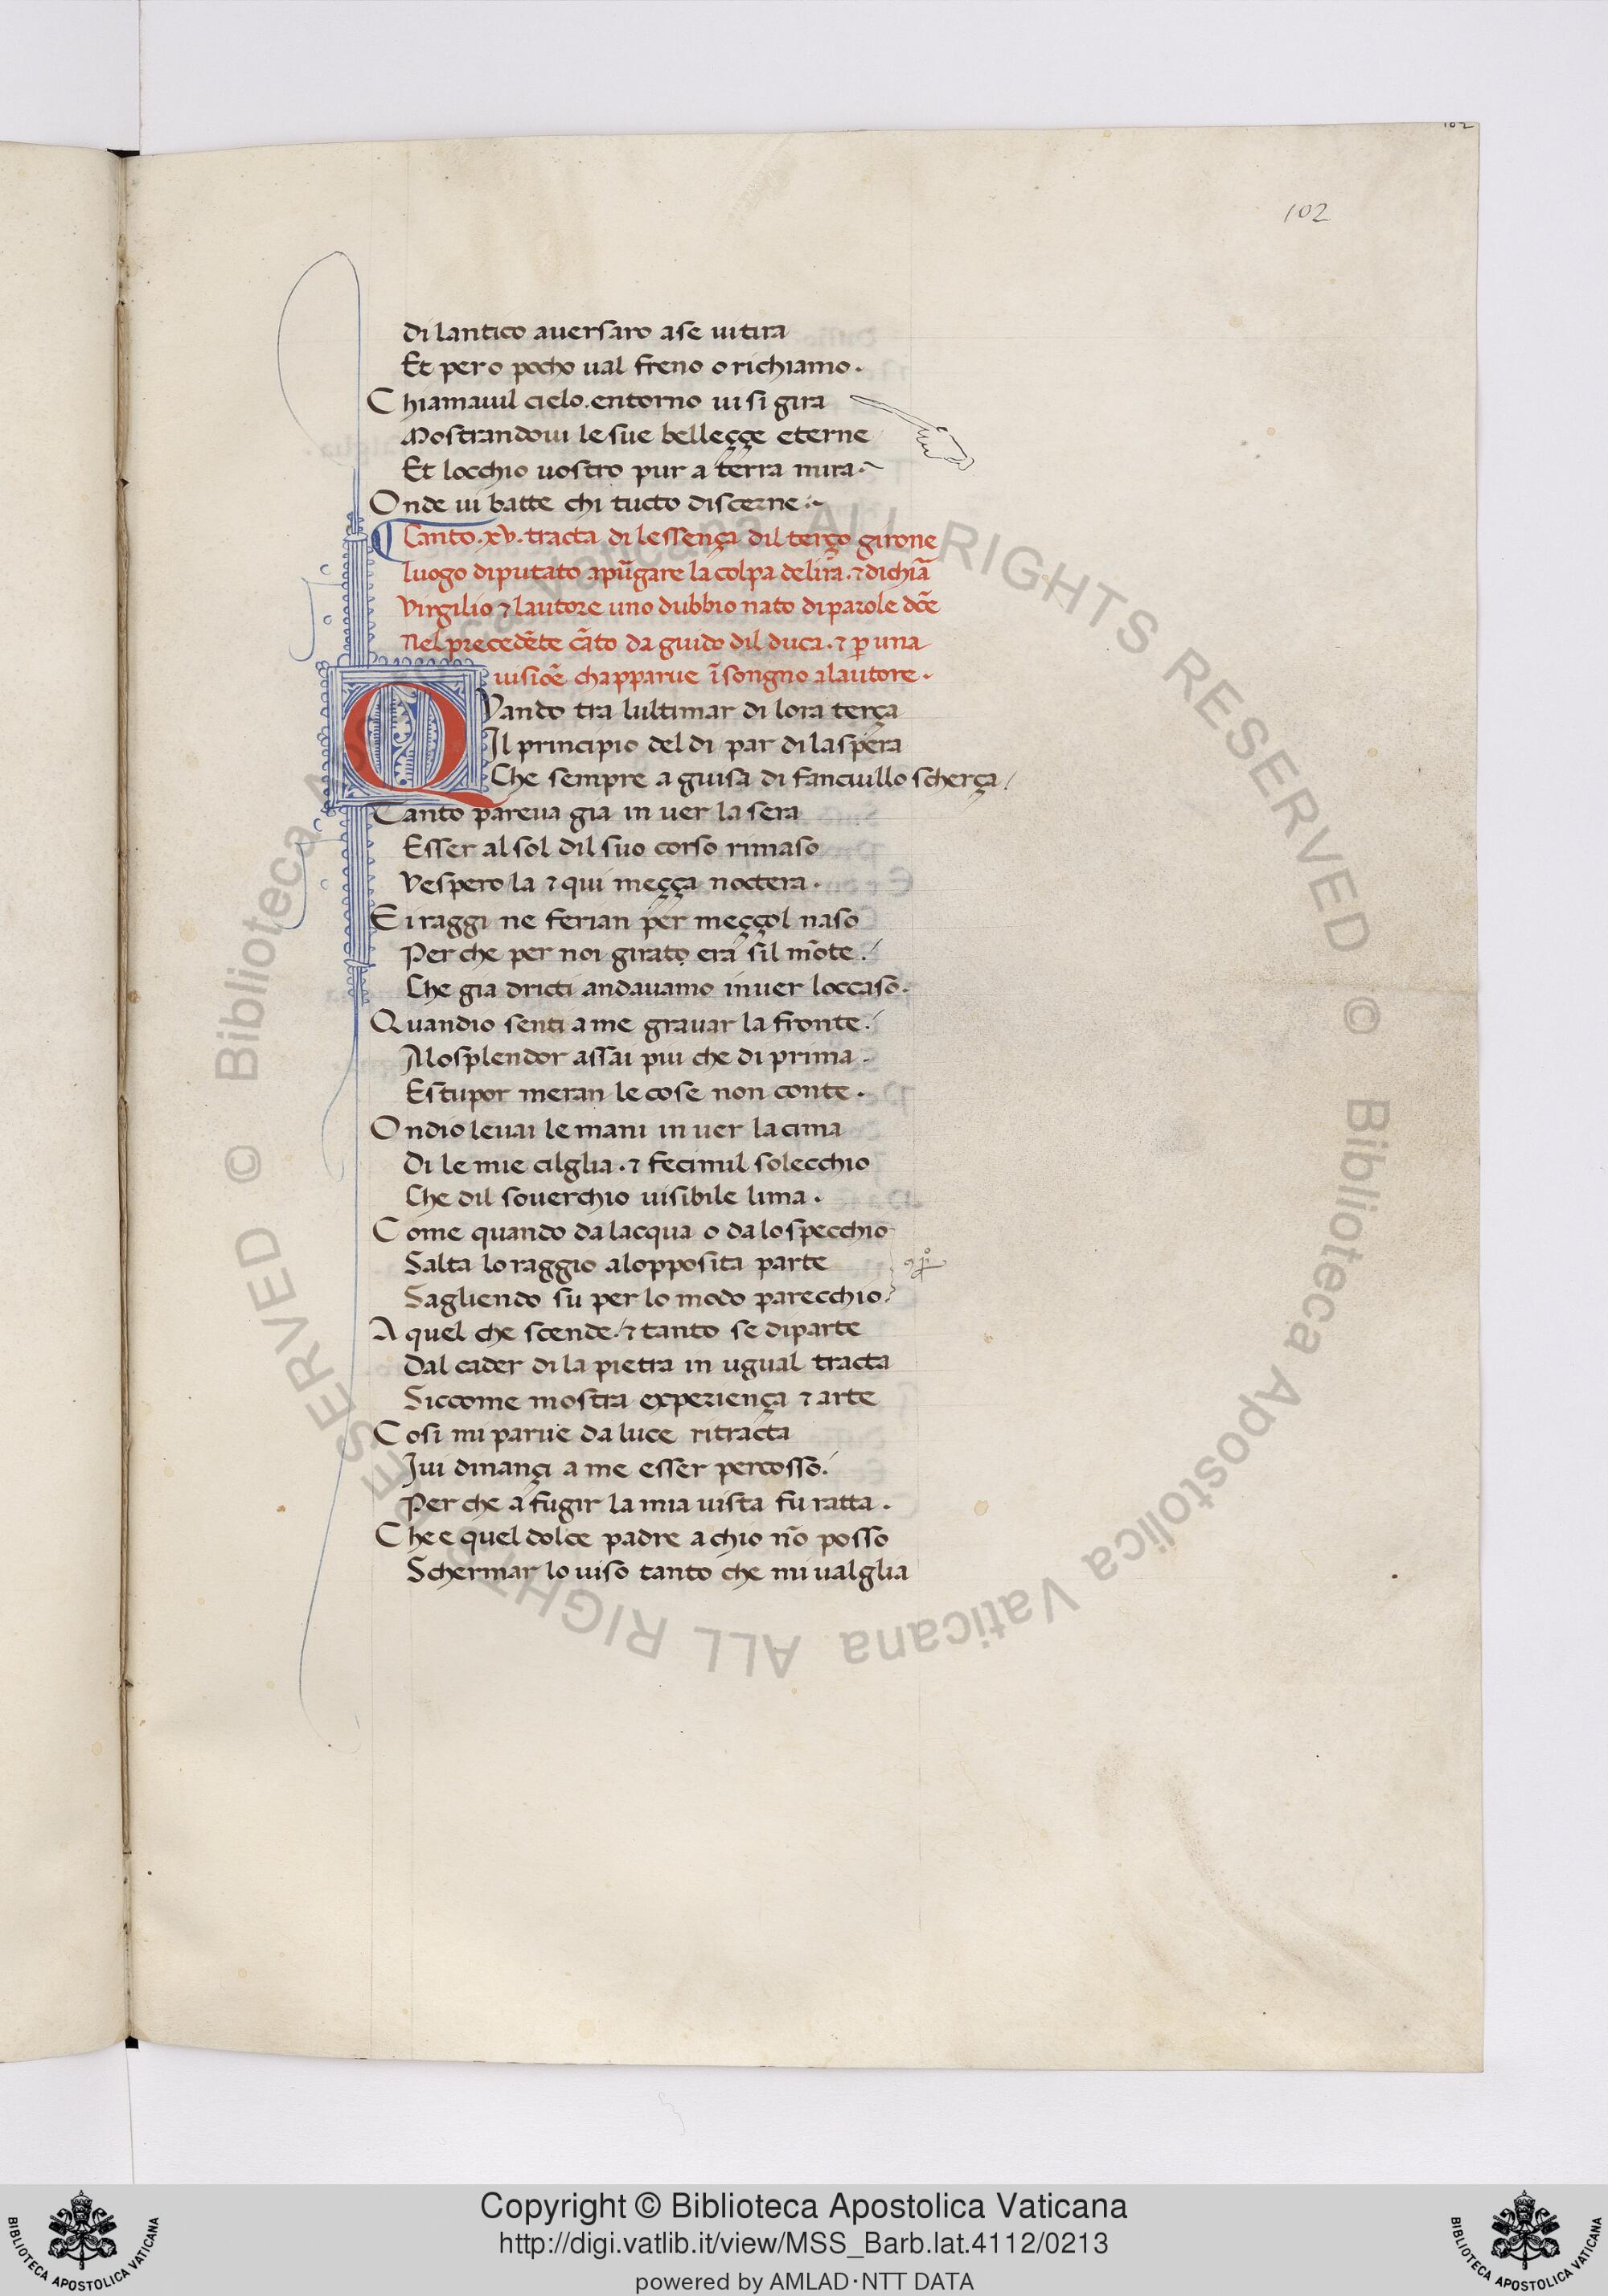 102
102
di lantico auersaro ase uitira
Et pero pocho ual freno o richiamo.
Chiamauil cielo.entorno ui si gira
Mostrandoui le sue belleççe eterne
Et locchio uostro pur a terra mira.~
Onde ui batte chi tucto discerne:~
¶ Canto.xv.tracta di lessença dil terço girone
luogo diputato apūgare la colpa de lira.⁊ dichiā
Virgilio ⁊ lautore uno dubbio nato di parole dc̄e
Nel precedēte cāto da guido dil duca.⁊ ꝑ una
uisiōe chapparue ī songno a lautore.
QVando tra lultimar di lora terça
Il principio del di par di la spera
Che sempre a guisa di fanciullo scherça/
Tanto pareua gia in uer la sera
Esser al sol dil suo corso rimaso
Vespero la ⁊ qui meçça noctera.
E i raggi ne ferian per meççol naso
Per che per noi girato era sil mōte./
Che gia dricti andauamo inuer loccaso.
Quandio senti a me grauar la fronte./
Alo splendor assai piu che di prima.
Estupor meran le cose non conte.
Ondio leuai le mani in uer la cima
Di le mie cilglia.⁊ fecimil solecchio
Che dil souerchio uisibile lima.
Come quando da lacqua o da lo specchio
Salta lo raggio a lopposita parte
Sagliendo su per lo modo parecchio
A quel che scende./⁊ tanto se diparte
Dal cader di la pietra in ugual tracta
Siccome mostra experiença ⁊ arte
Cosi mi parue da luce ritracta
Iui dinançi a me esser percosso./
Per che a fugir la mia uista fu ratta.
Che e quel dolce padre a chio nō posso
Schermar lo uiso tanto che mi ualglia
© Biblioteca Apostolica Vaticana ALL RIGHTS RESERVED © Biblioteca Apostolica Vaticana ALL RIGHTS RESERVED
Copyright © Biblioteca Apostolica Vaticana
http://digi.vatlib.it/view/MSS_Barb.lat.4112/0213
powered by AMLAD·NTT DATA
BIBLIOTECA APOSTOLICA VATICANA
BIBLIOTECA APOSTOLICA VATICANA